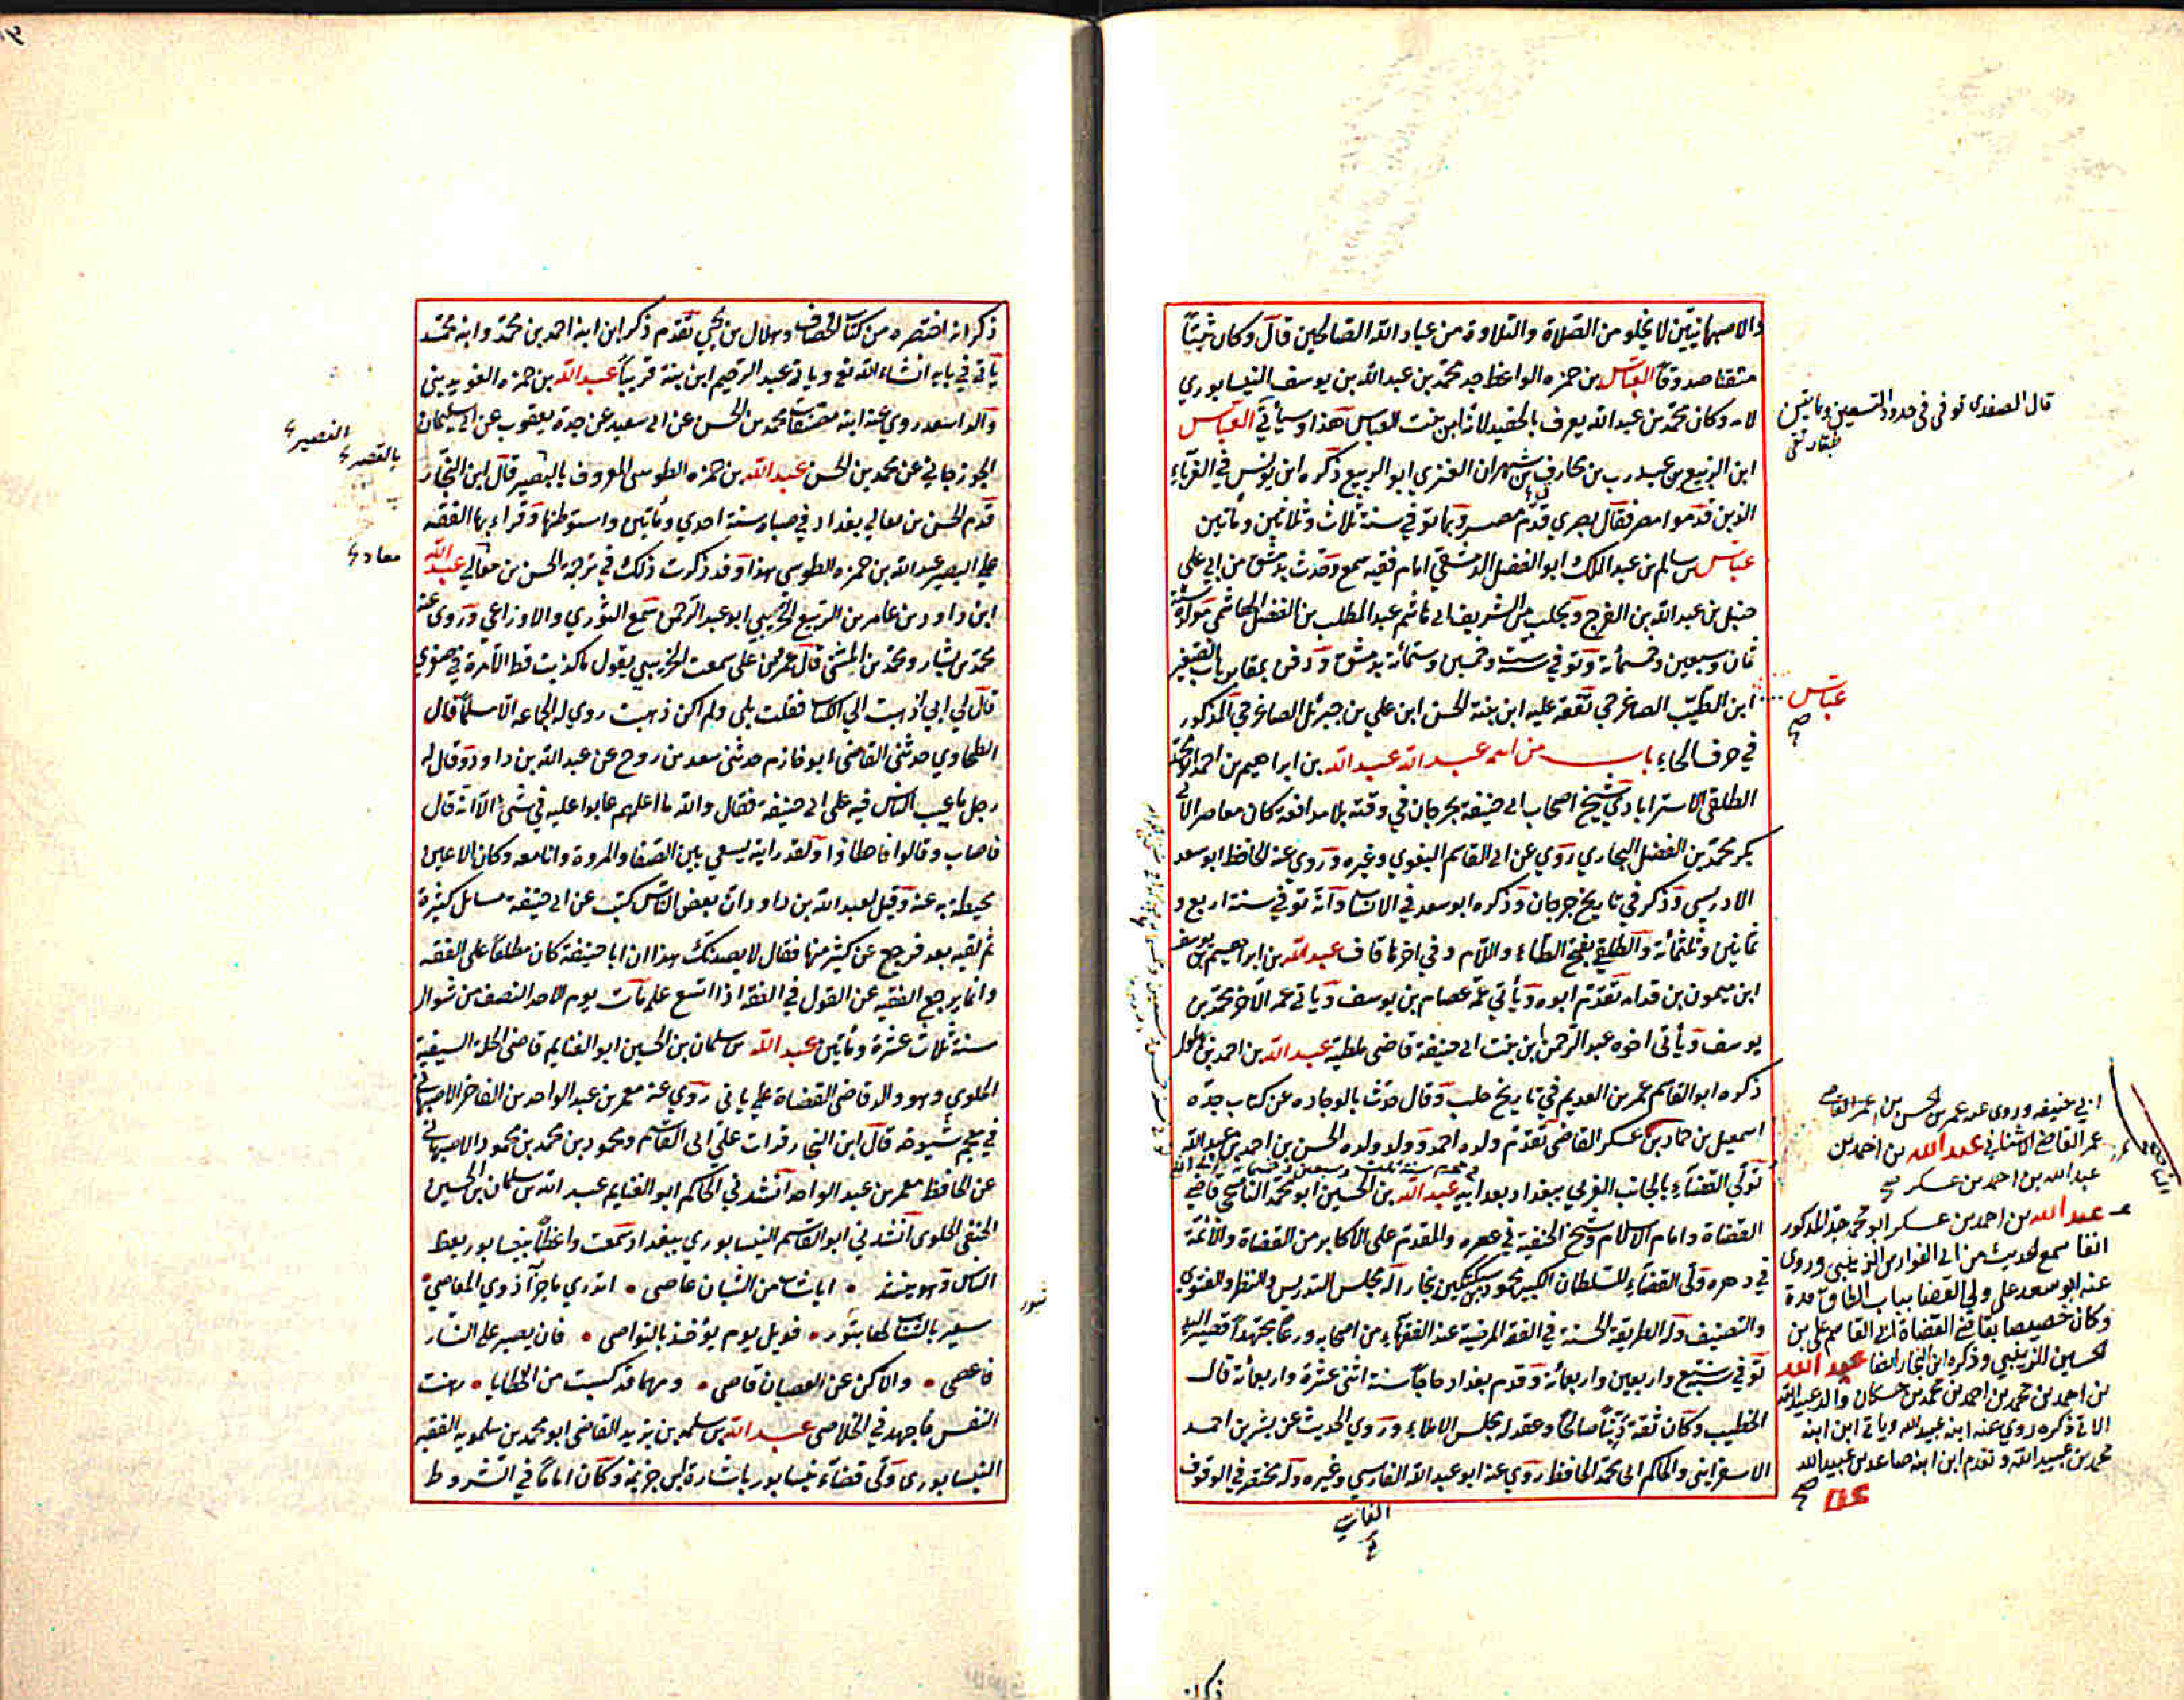 والاصبهانيين لا يخلو من الصلاة والتلاوة من عباد الله الصالحين قال وكان ثبتاً
متقنا صدوقاً العباس بن حمزه الواعظ جد محمد بن عبدالله بن يوسف النيسابوري
لامه وكان محمد بن عبد الله يعرف بالحفيد لانه ابن بنت العباس هذا وسيأتي العباس
ابن الربيع بن عبد رب بن مخارق بن شهران العنزي ابو الربيع ذكره ابن يونس في الغرباء
الذين قدموا مصر فقال بصري قدم مصر وبها توفي في سنة ثلاث وثلاثين ومأتين
عباس بن سالم بن عبد الملك ابو الفضل الدمشقي امام فقيه سمع وحدث بدمشق من ابي علي
حنبل بن عبد الله بن الفرج وبحلب من الشريف ابي هاشم عبد المطلب بن الفضل الهاشمي مولده سنة
ثمان وسبعين وخمسمأئة وتوفي في سنة ست وخمسين وستمأئة بدمشق ودفن بمقابر باب الصغير
ابن الطيب الصاغرجي تفقه عليه ابن بنته الحسن ابن علي بن جبرئل الصاغرجي المذكور
في حرف الحاء باب من اسمه عبد الله عبد الله بن ابراهيم بن احمد ابو محمد
الطلقي الاسترابادي شيخ اصحاب ابي حنيفة بجرجان في وقته بلا مدافعة كان معاصرا لابي
بكر محمد بن الفضل البخاري روي عن ابي القاسم البغوي وغيره وروي عنه الحافظ ابو سعد
الادريسي وذكر في تاريخ جرجان وذكره ابو سعد في الانساب وانه توفي في سنة اربع و
ثمانين وثلثمأئة والطلقي بفتح الطاء واللام وفي اخرها قاف عبد الله بن ابراهيم بن يوسف
ابن ميمون بن قدامه تقدم ابوه ويأتي عمه عصام بن يوسف وياتي عمه الآخر محمد بن
يوسف ويأتي اخوه عبد الرحمن ابن بنت ابي حنيفة قاضي ملطية عبد الله بن احمد بن بهلول
ذكره ابو القاسم عمر بن العديم في تاريخ حلب وقال حدث بالوجاده عن كتاب جده
اسمعيل بن حماد بن عسكر القاضي تقدم ولده احمد وولد ولده الحسن بن احمد بن عبد الله
تولي القضاء بالجانب الغربي ببغداد بعد ابيه عبد الله بن الحسين ابو محمد الناصحي قاضي
القضاة وامام الاسلام وشيخ الحنفية في عصره والمقدم علي الاكابر من القضاة والائمة
في دهره ولي القضاء للسلطان الكبير محمود بن سبكتكين ببخارا له مجلس التدريس والنظر والفتوي
والتصنيف وله الطريقة الحسنة في الفقه المرضية عند الفقهاء من اصحابه ورعاً مجتهداً قصير اليد
توفي سنة سبع واربعين واربعمائة وقدم بغداد حاجاً سنة اثني عشرة واربعمائة قال
الخطيب وكان ثقة ديناً صالحاً وعقد له مجلس الاملاء وروي الحديث عن بشر بن احمد
الاسفرايني والحاكم ابي محمد الحافظ روي عنه ابو عبد الله الفارسي وغيره وله مختصر في الوقوف
قال الصفدي توفي في حدود التسعين ومايتين
طبقات تقي
عباس
صح
ابي حنيفه وروى عنه عمر بن الحسن بن عمر القاضي
عمر القاضي الاشناني عبد الله بن احمد بن
عبد الله بن احمد بن عسكر صح
عبد الله بن احمد بن عسكر ابو محمد جد المذكور
انفا سمع الحديث من ابي الفوارس الزينبي وروى
عنه ابو سعد علي ولي القضا بباب الطاق مدة
وكان خصيصا بقاضي القضاة ابي القاسم علي بن
الحسين الزينبي وذكره ابن النجار ايضا عبد الله
بن احمد بن محمد بن احمد بن محمد بن حسكان والد عبيد الله
الاتي ذكره روي عنه ابنه عبيد الله وياتي ابن ابنه
محمد بن عبيد الله وتقدم ابن ابنه صاعد بن عبيد الله
صح
ذكر انه
ذكر انه اختصره من كتاب الخصاف وهلال بن يحيي تقدم ذكر ابن ابنه احمد بن محمد وابنه محمد
يأتي في بابه انشاء الله تع وياتي عبد الرحيم ابن بنته قريباً عبد الله بن حمزه الغويديني
والد اسعد روي عنه ابنه معتقات محمد بن الحسن عن ابي سعيد عن جده يعقوب عن ابي سليمان
الجوزجاني عن محمد بن الحسن عبد الله بن حمزه الطوسي المعروف بالبصير قال ابن النجار
قدم الحسن بن معالي بغداد في صباه سنة احدي ومأتين واستوطنها وقراء بها الفقه
علي البصير عبد الله بن حمزه الطوسي هذا وقد ذكرت ذلك في ترجمة الحسن بن معالي عبد الله
ابن داود بن عامر بن الربيع الخريبي ابو عبد الرحمن سمع الثوري والاوزاعي وروى عنه
محمد بن بشار ومحمد بن المثني قال عمرو بن علي سمعت الخريبي يقول ما كذبت قط الا مرة في صغري
قال لي ابي اذهبت الي الكتاب فقلت بلي ولم اكن ذهبت روي له الجماعه الا مسلماً قال
الطحاوي حدثني القاضي ابو خازم حدثني سعد بن روح عن عبد الله بن داود وقال له
رجل ما عيب الناس فيه علي ابي حنيفة فقال والله ما اعلمهم عابوا عليه في شئ الا انه قال
فاصاب وقالوا فاخطاؤا ولقد رايته يسعي بين الصفا والمروة وانا معه وكان الاعين
محيطة به عنه وقيل لعبد الله بن داود ان بعض الناس كتب عن ابي حنيفة مسائل كثيرة
ثم لقيه بعد فرجع عن كثير منها فقال لا يصدنك هذا ان ابا حنيفة كان مطلعاً على الفقه
وانما يرجع الفقيه عن القول في الفقه اذا اتسع علمه مات يوم الاحد النصف من شوال
سنة ثلاث عشرة ومأتين عبد الله بن سلمان بن الحسين ابو الغنايم قاضي الحلة السيفية
الحلوي وهو والد قاضي القضاة علي ياتي روي عنه معمر بن عبد الواحد بن الفاخر الاصبهاني
في معجم شيوخه قال ابن النجار قرات علي ابي القاسم ومحمود بن محمد بن محمود الاصبهاني
عن الحافظ معمر بن عبد الواحد انشدني الحاكم ابو الغنايم عبد الله بن سلمان بن الحسين
الحنفي الحلوي انشدني ابو القاسم النيسابوري ببغداد سمعت واعظاً بنيسابور يعظ
الناس وهو ينشد • ايا شاب من الشبان عاصي • اتدري ما جزآ ذوي المعاصي •
سعير بالشباب لها يثور • فويل يوم يؤخذ بالنواصي • فان يصبر علي النار
فاعصي • والا كن عن العصيان قاصي • ومهما قد كسبت من الخطايا • رهنت
النفس فاجهد في الخلاصي عبد الله بن سلمه بن يزيد القاضي ابو محمد بن سلمويه الفقيه
النيسابوري ولي قضاء نيسابور باشارة ابن خزيمة وكان اماماً في الشروط
النصير
بالقصير
معاد